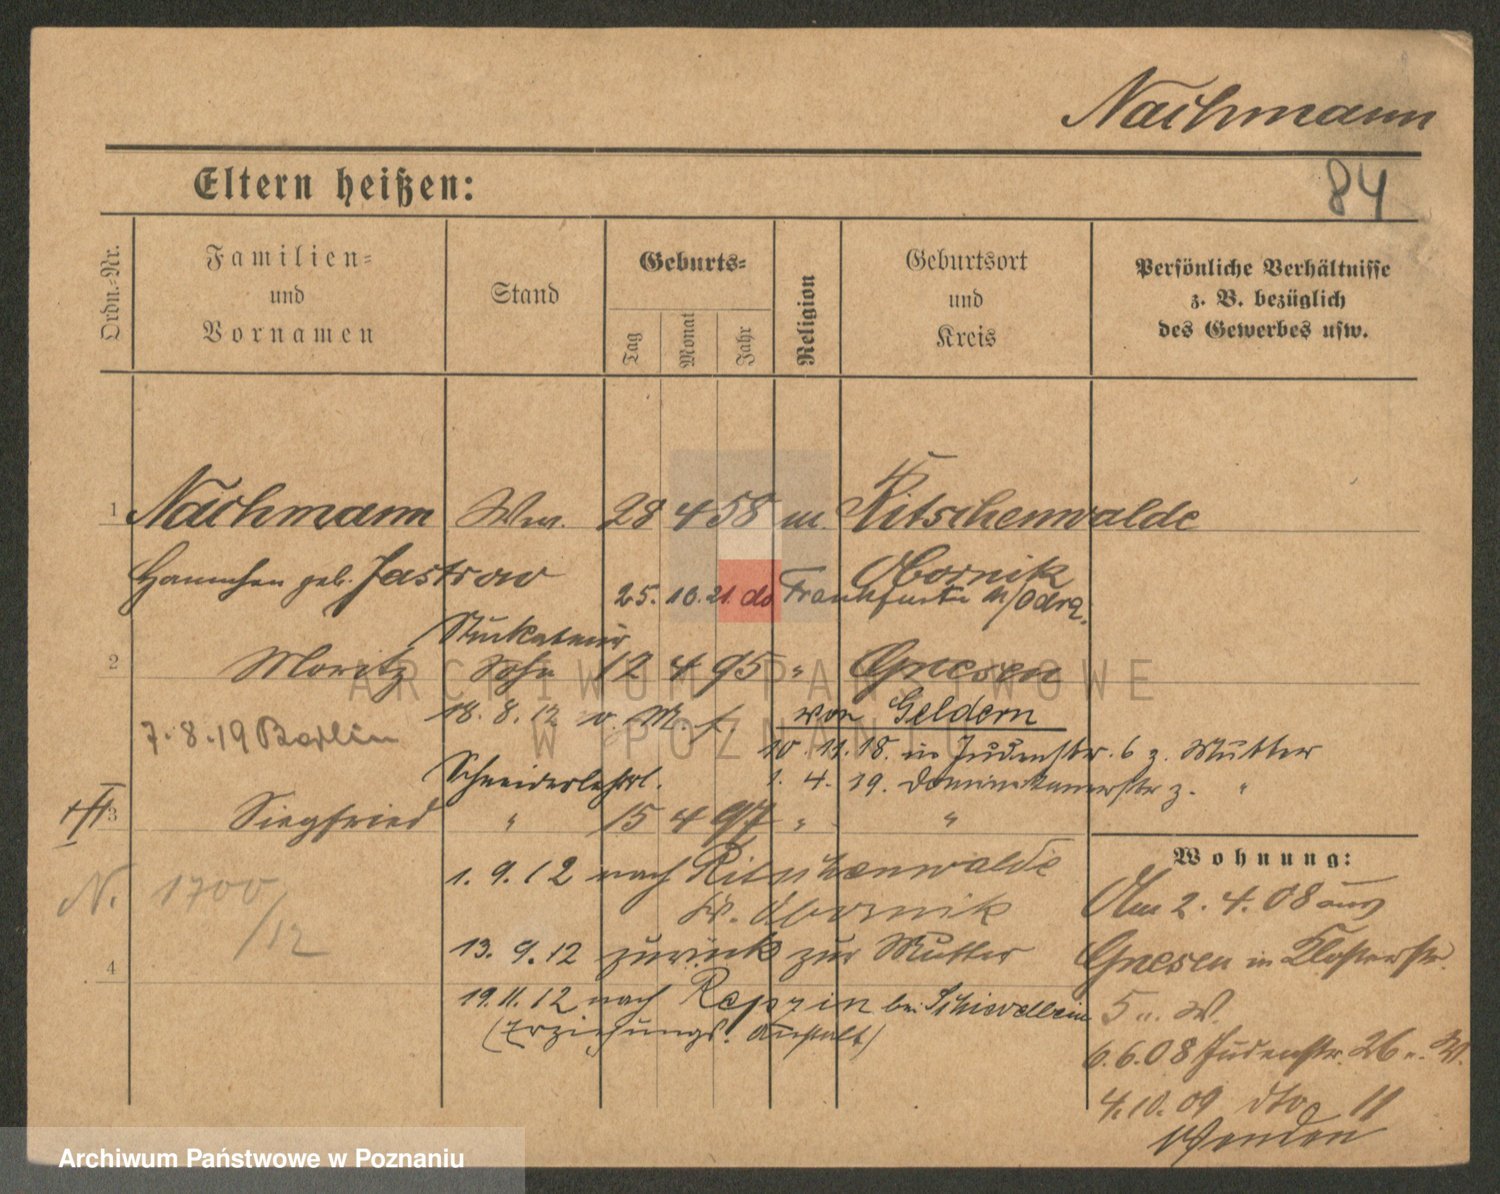 Nachmann
84
Eltern heißen:
Ordn.-Nr.
Familien=
und
Vornamen
Stand
Geburts=
Tag
Monat
Jahr
Religion
Geburtsort
und
Kreis
Persönliche Verhältnisse
z. B. bezüglich
des Gewerbes usw.
1 Nachmann Ww. 28 4 58 m. Ritschenwalde
Hannchen geb. Jastrow Obornik
25. 10. 21. do Frankfurt a/Oder
Stuckateur
2 Moritz Sohn 12 4 95 " Gnesen
18. 8. 12 v. M. f. von Geldern
7. 8. 19 Berlin
10. 11. 18. in Judenstr. 6 z. Mutter
Schneiderlehrl. 1. 4. 19. Dominikanerstr z. "
3 Siegfried " 15 4 97 " "
Wohnung:
1. 9. 12 nach Ritschenwalde
N. 1700/12
Kr. Obornik
Am 2. 4. 08 aus
13. 9. 12 zurück zur Mutter
Gnesen in Klosterstr.
4
19. 11. 12 nach Repzin bei Schievelbein
(Erziehungs. Anstalt)
5 u. W.
6. 6. 08 Judenstr. 26 u. W.
4. 10. 09 dto 11
Wenden
ARCHIWUM PAŃSTWOWE
W POZNANIU
Archiwum Państwowe w Poznaniu